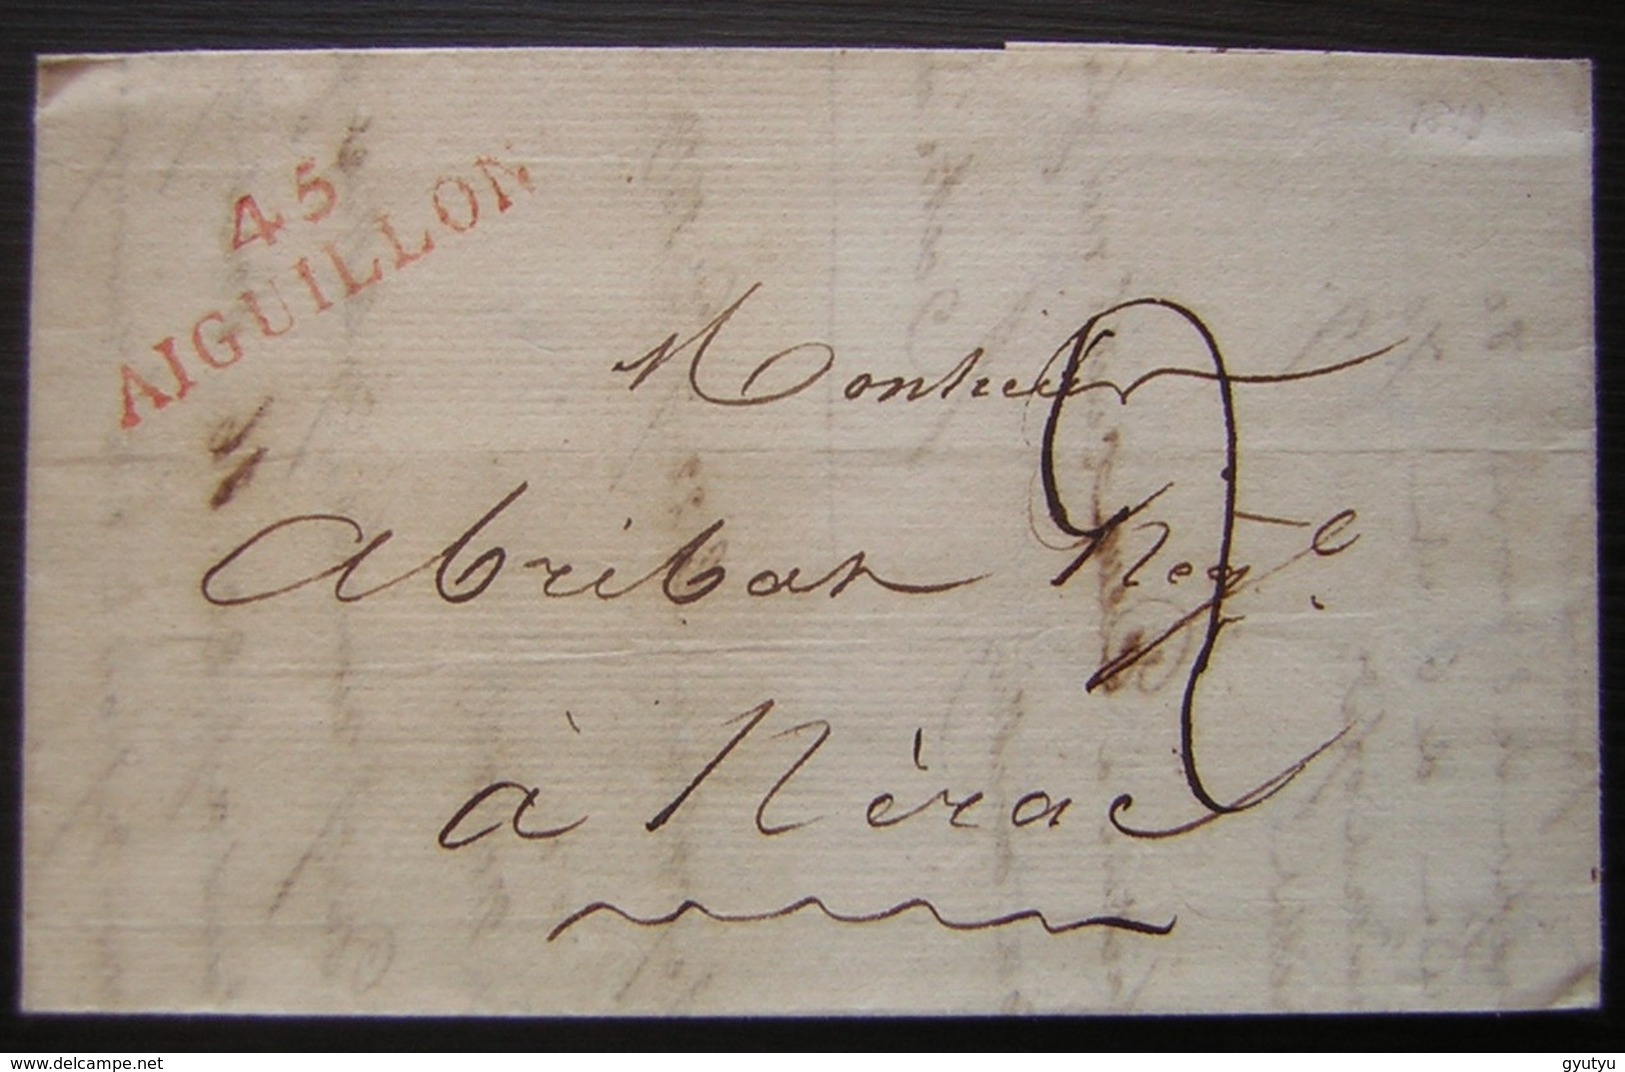 45
AIGUILLON
Monsieur
Abribat Negt.
à Nérac
2
© delcampe.net
gyutyu